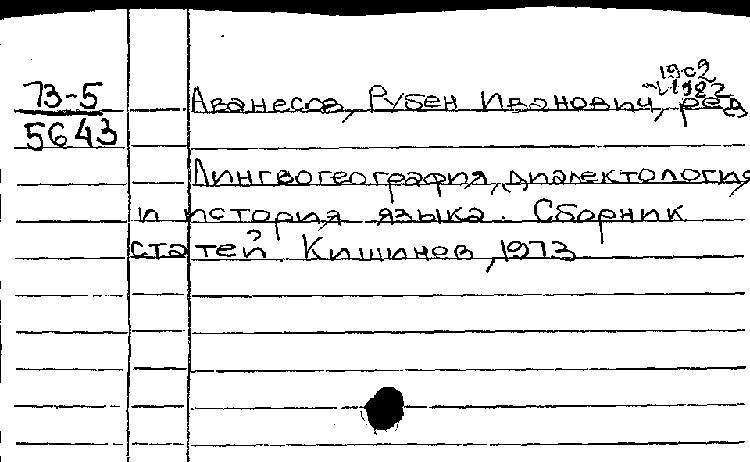 1902
-1982
73-5
Аванесов, Рубен Иванович, ред
5643
Лингвогеография, диалектология
и история языка. Сборник
статей. Кишинев, 1973